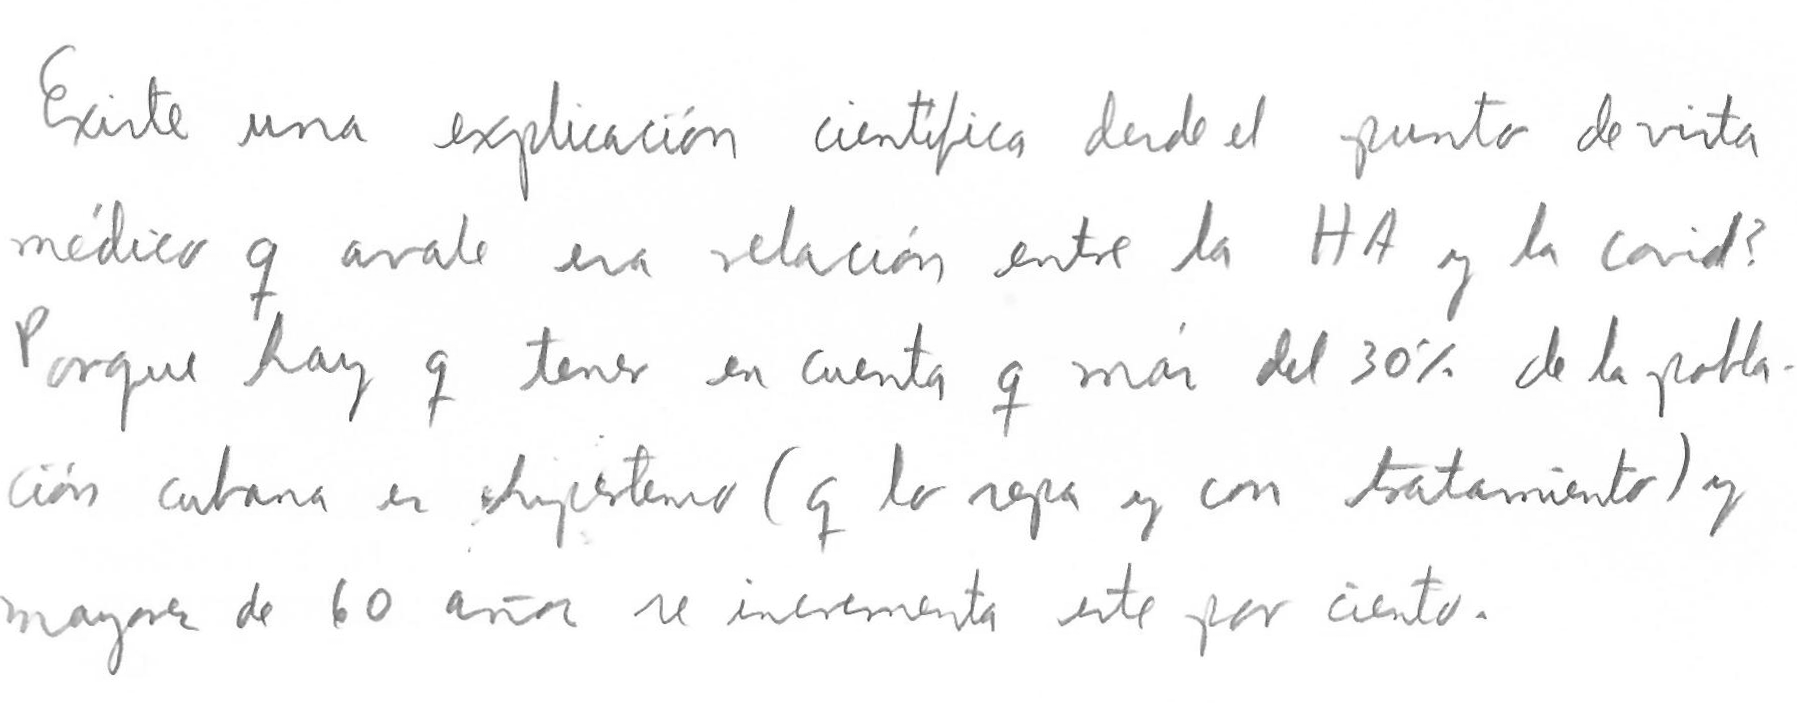 Existe una explicación científica desde el punto de vista
médico q avale esa relación entre la HA y la covid?
Porque hay q tener en cuenta q más del 30% de la pobla-
ción cubana es hipertenso (q lo sepa y con tratamiento) y
mayores de 60 años se incrementa este por ciento.